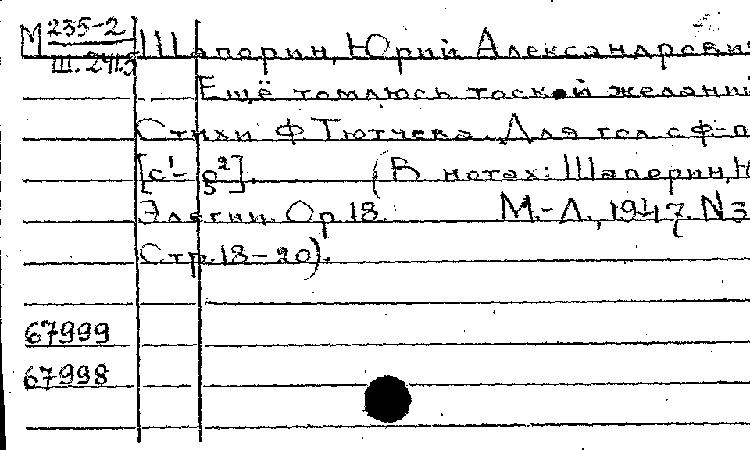 М 235-2
Ш. 2415
Шапорин, Юрий Александрович
Ещё томлюсь тоской желаний
Стихи Ф Тютчева. Для гол. с ф-п
[c¹- g²]. (В нотах: Шапорин, Ю
Элегии. Op. 18. М.-Л., 1947. N 3
Стр. 18-20).
67999
67998